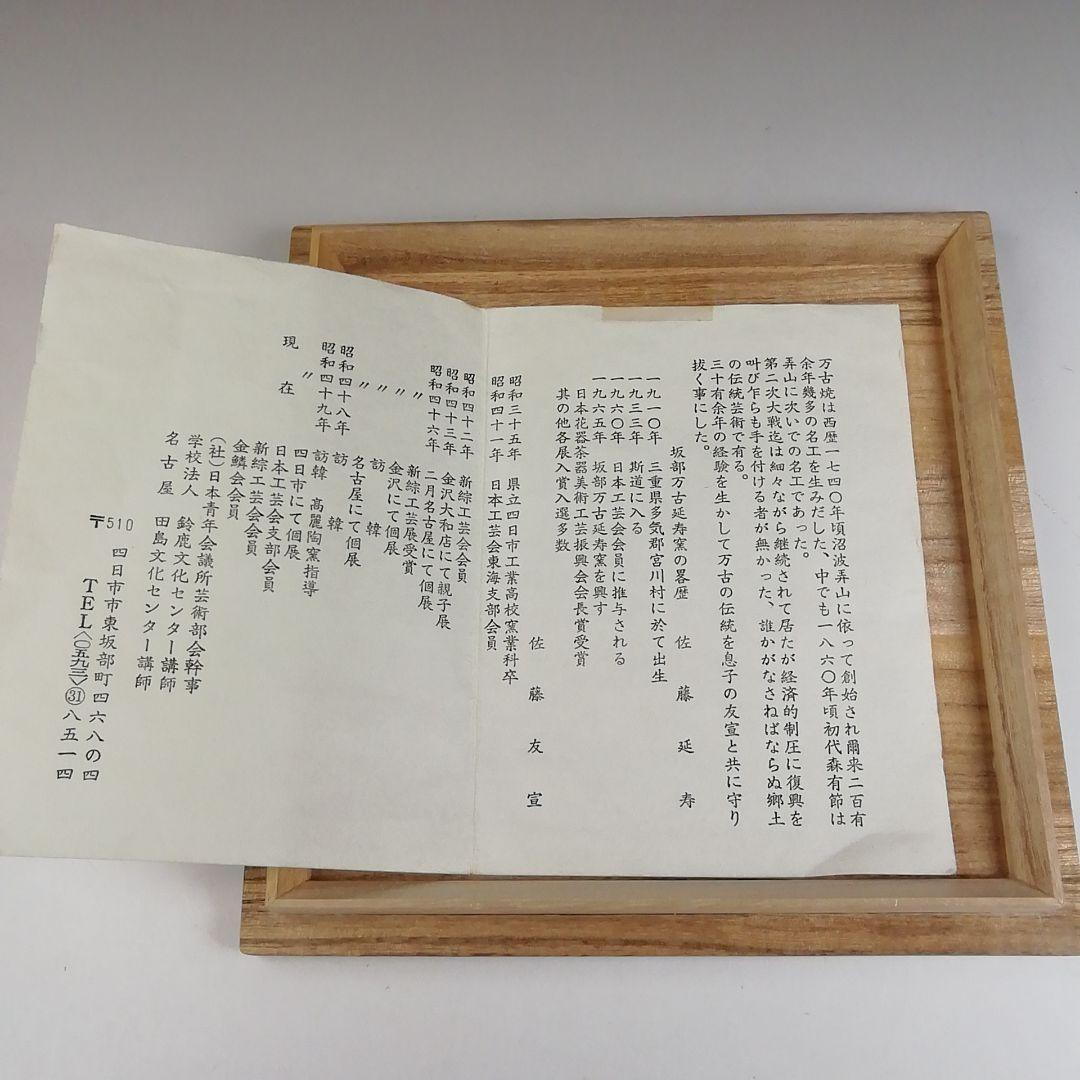 万古焼は西歴一七四〇年頃沼波弄山に依って創始され爾来二百有
余年幾多の名工を生みだした、中でも一八六〇年頃初代森有節は
弄山に次いでの名工であった。
第二次大戦迄は細々ながら継続されて居たが経済的制圧に復興を
叫び乍らも手を付ける者が無かった、誰かがなさねばならぬ郷土
の伝統芸術で有る。
三十有余年の経験を生かして万古の伝統を息子の友宣と共に守り
抜く事にした。
坂部万古延寿窯の畧歴 佐藤延寿
一九一〇年 三重県多気郡宮川村に於て出生
一九三三年 斯道に入る
一九六〇年 日本工芸会会員に推与される
一九六五年 坂部万古延寿窯を興す
日本花器茶器美術工芸振興会会長賞受賞
其の他各展入賞入選多数
佐藤友宣
昭和三十五年 県立四日市工業高校窯業科卒
昭和四十一年 日本工芸会東海支部会員
昭和四十二年 新綜工芸会会員
昭和四十三年 金沢大和店にて親子展
昭和四十六年 二月名古屋にて個展
〃 新綜工芸展受賞
〃 金沢にて個展
〃 訪韓
〃 名古屋にて個展
昭和四十八年 訪韓
昭和四十九年 訪韓 高麗陶窯指導
〃 四日市にて個展
現在 日本工芸会支部会員
新綜工芸会会員
金鱗会会員
(社)日本青年会議所芸術部会幹事
学校法人 鈴鹿文化センター講師
名古屋 田島文化センター講師
〒510 四日市市東坂部町四六八の四
TEL〈〇五九三〉㉛八五一四